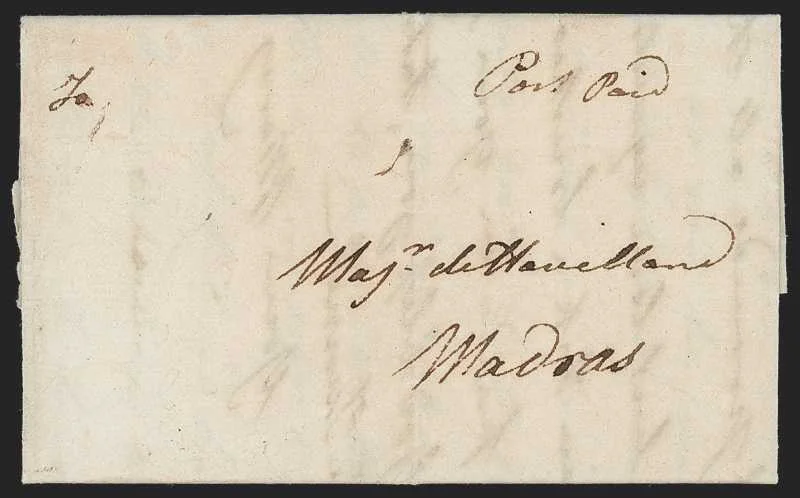 To
Post Paid
Majr. de Havelland
Madras